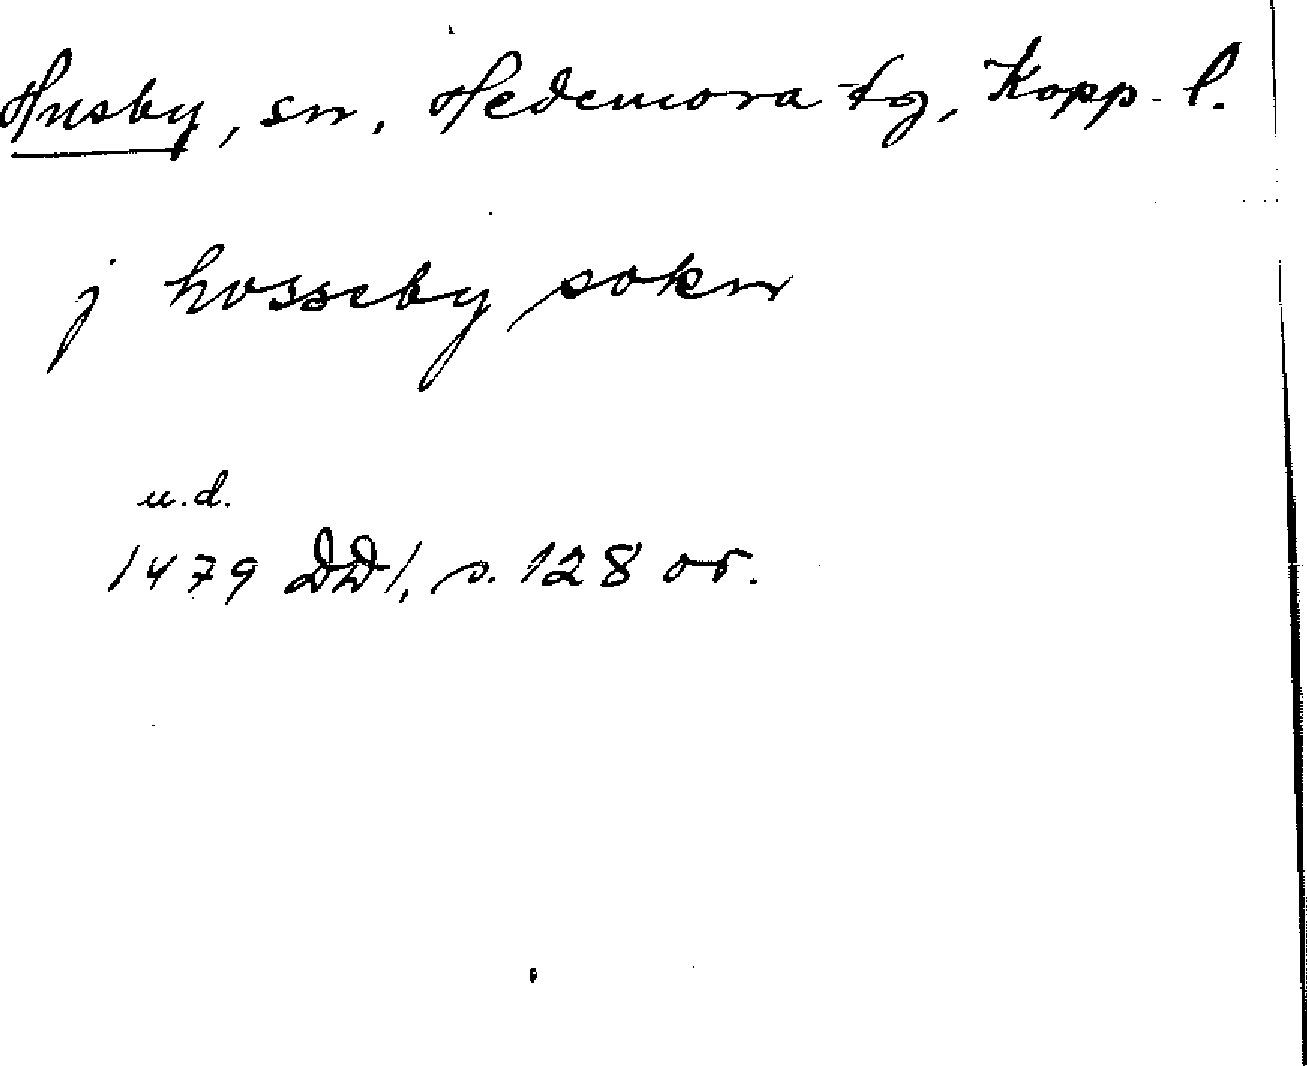 Husby, sn, Hedemora tg, Kopp. l.
j hosseby sokn
u.d.
1479 DD1, s. 128 or.